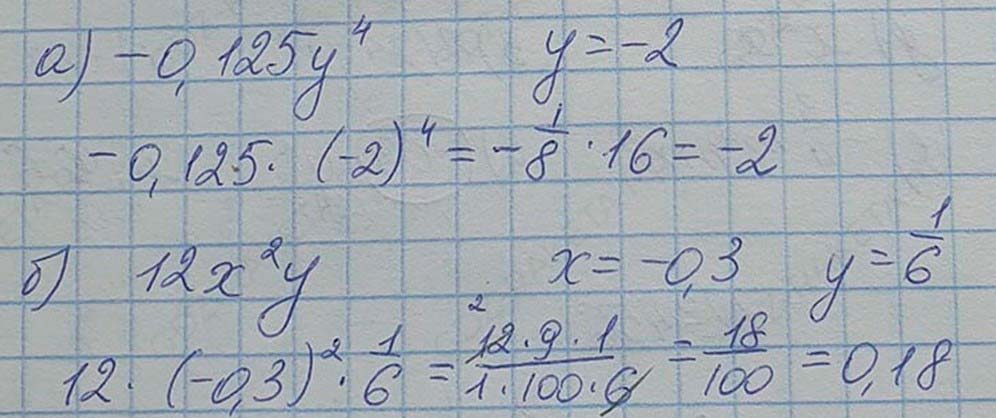 а) -0,125y⁴ y = -2
-0,125 · (-2)⁴ = -1/8 · 16 = -2
б) 12x²y x = -0,3 y = 1/6
12 · (-0,3)² · 1/6 = ²12 · 9 · 1/1 · 100 · 6 = 18/100 = 0,18